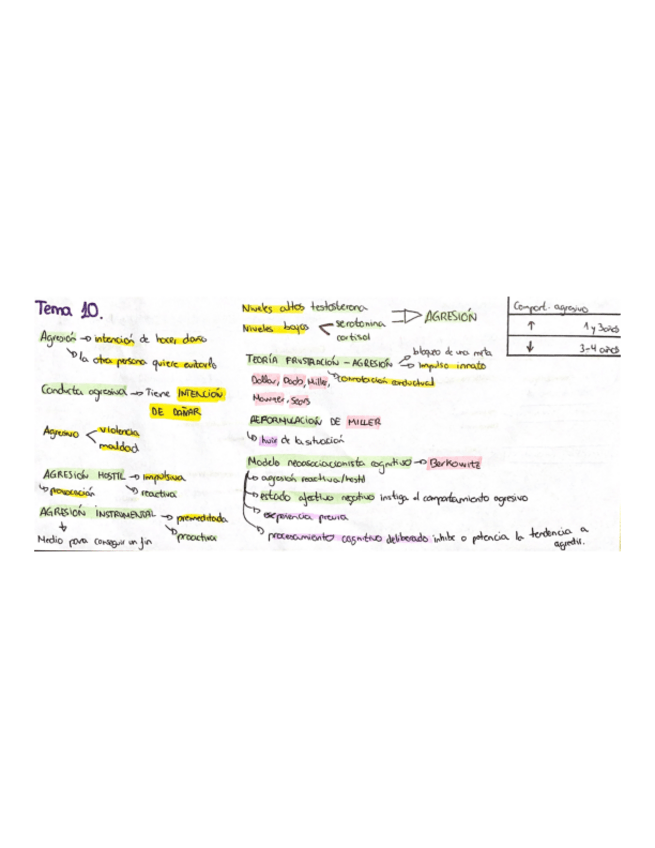 Tema 10.
Agresión → intención de hacer daño
↳ la otra persona quiere evitarlo
Conducta agresiva → Tiene INTENCIÓN
DE DAÑAR
Agresivo < violencia
maldad
AGRESIÓN HOSTIL → impulsiva
↳ provocación ↳ reactiva
AGRESIÓN INSTRUMENTAL → premeditada
↳ proactiva
Medio para conseguir un fin
Niveles altos testosterona
Niveles bajos < serotonina
cortisol
⇒ AGRESIÓN
TEORÍA FRUSTRACIÓN - AGRESIÓN → bloqueo de una meta
→ Impulso innato
↳ connotación conductual
Dollar, Doob, Miller,
Mowrer, Sears
REFORMULACIÓN DE MILLER
↳ huir de la situación
Modelo neoasociacionista cognitivo → Berkowitz
↳ agresión reactiva/hostil
↳ estado afectivo negativo instiga al comportamiento agresivo
↳ experiencia previa
↳ procesamiento cognitivo deliberado inhibe o potencia la tendencia a
agredir.
Comport. agresivo
↑ 1 y 3 años
↓ 3-4 años